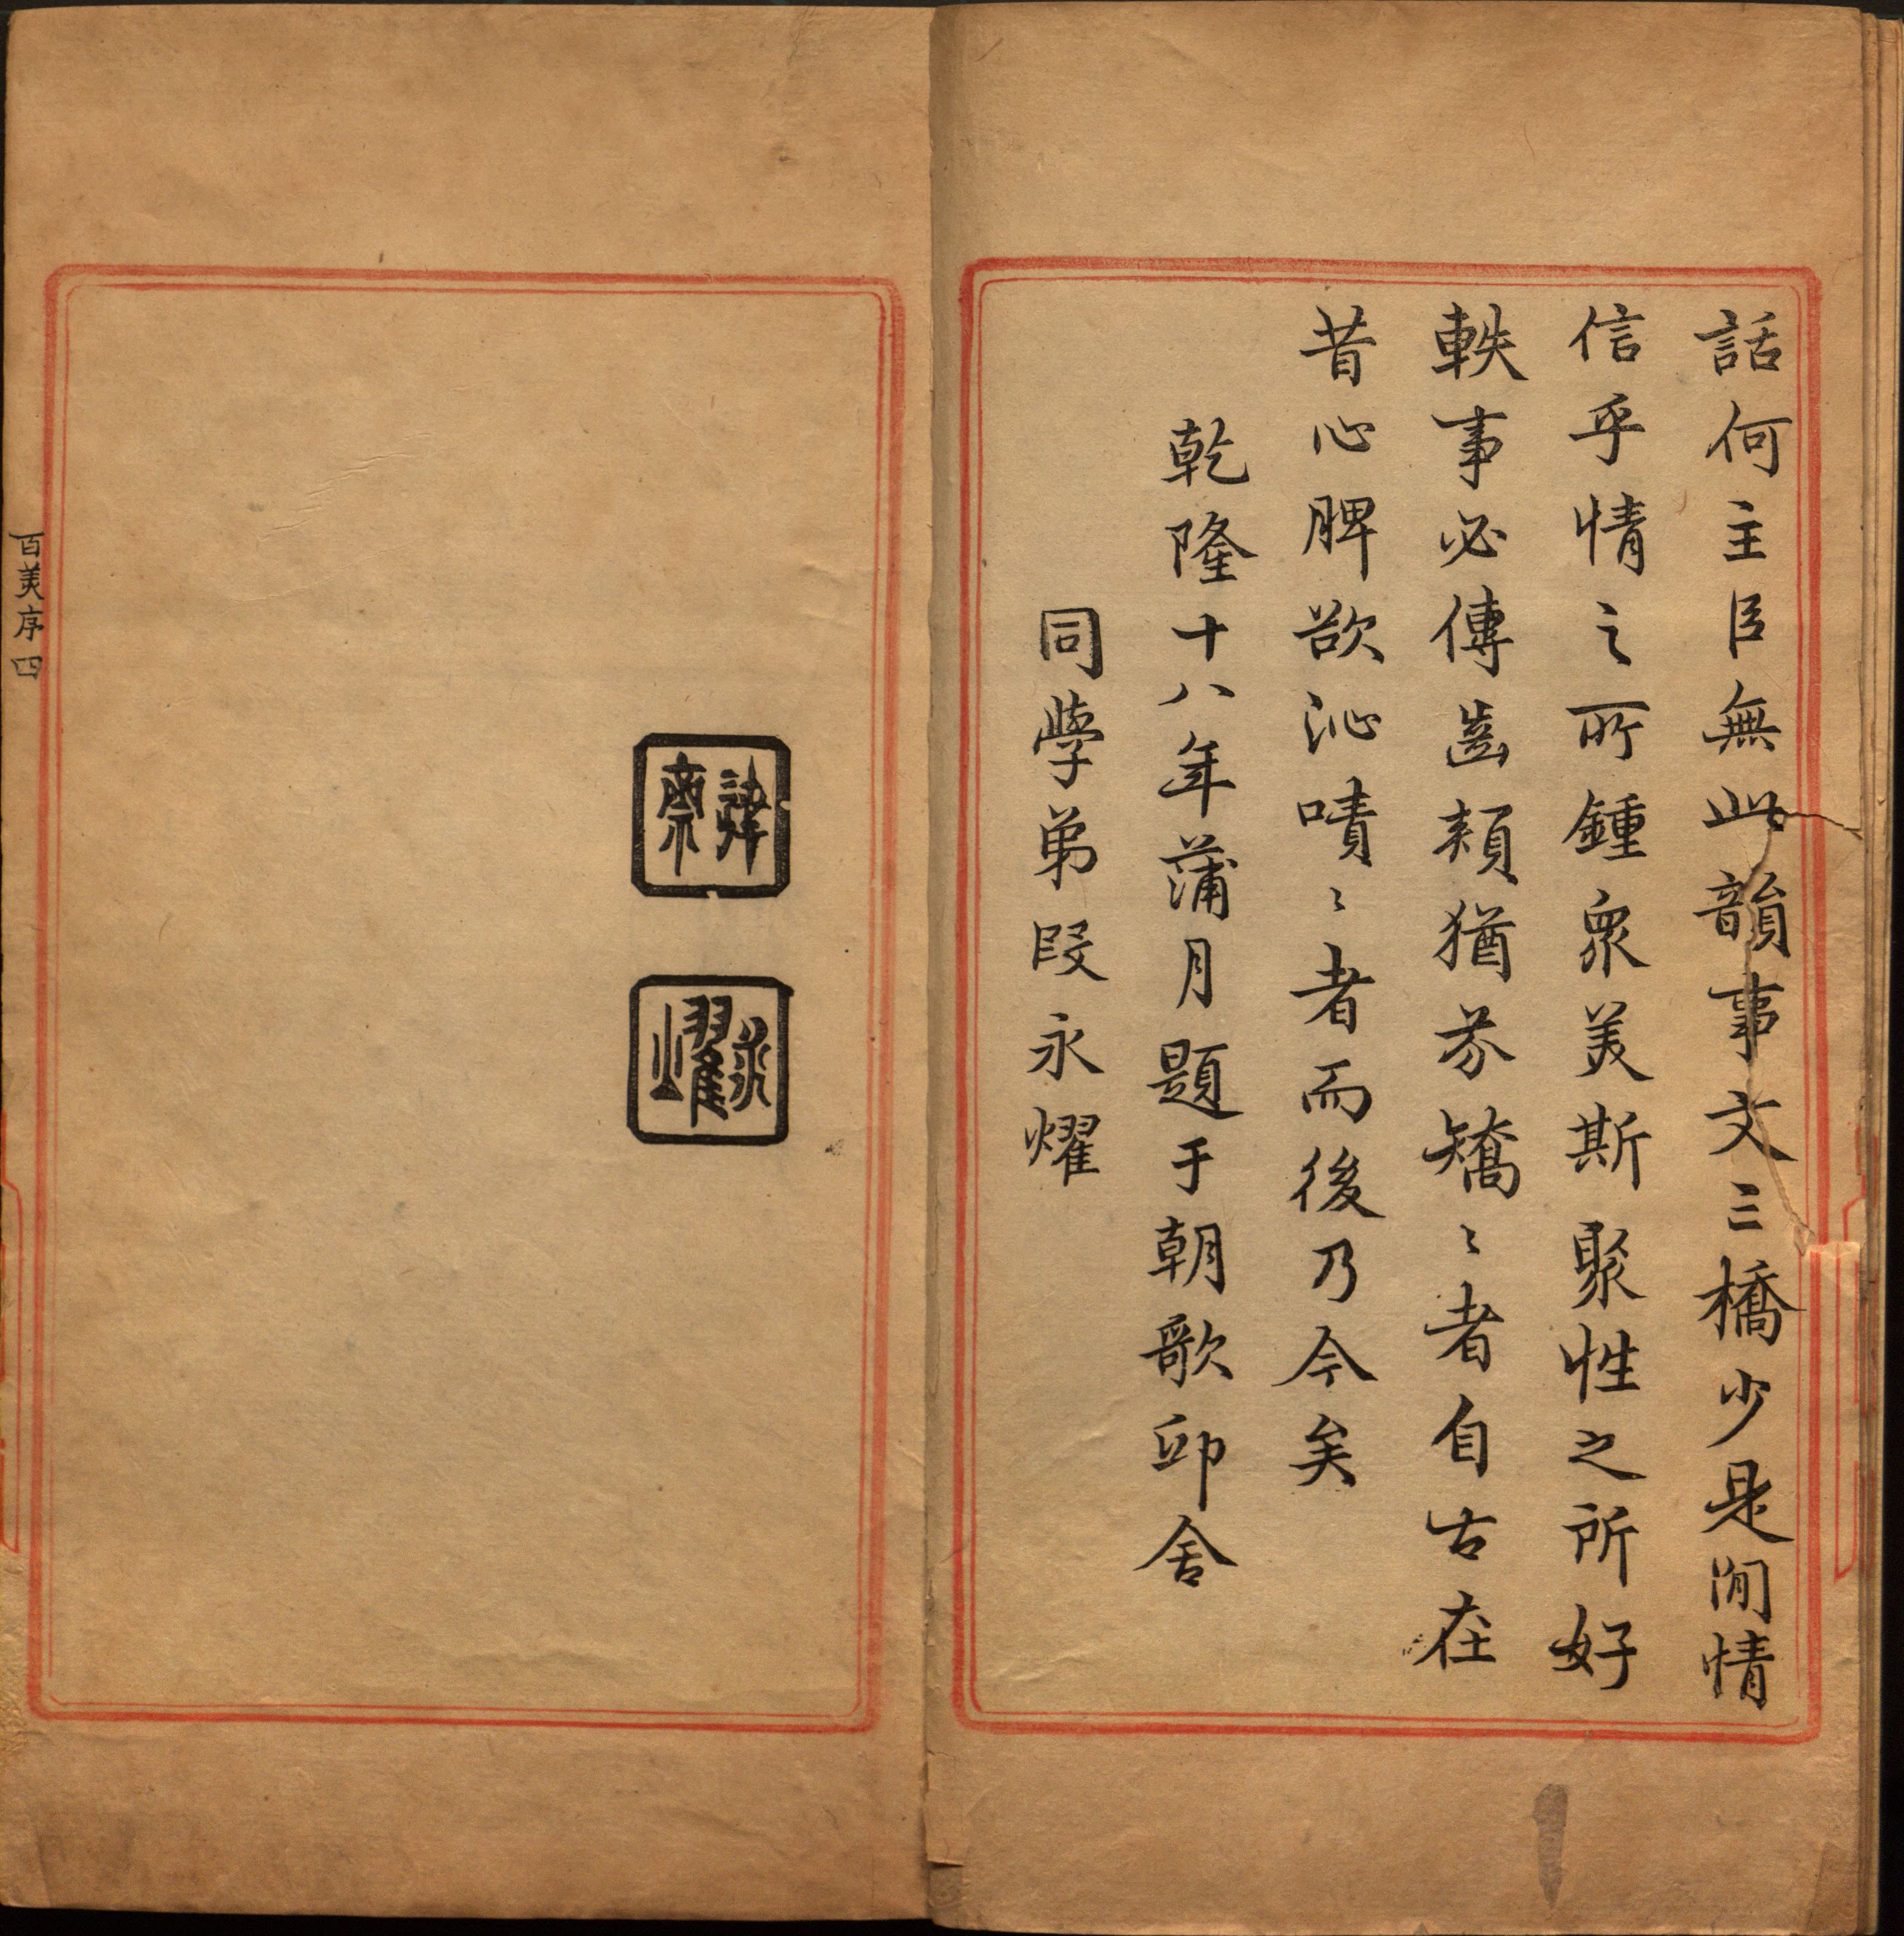 話何主臣無此韻事文三橋少是閒情
信乎情之所鍾衆美斯聚性之所好
軼事必傳齒頰猶芬矯〻者自古在
昔心脾欲沁嘖〻者而後乃今矣
乾隆十八年蒲月題于朝歌邱舍
同學弟段永燿
百美序
四
永燿